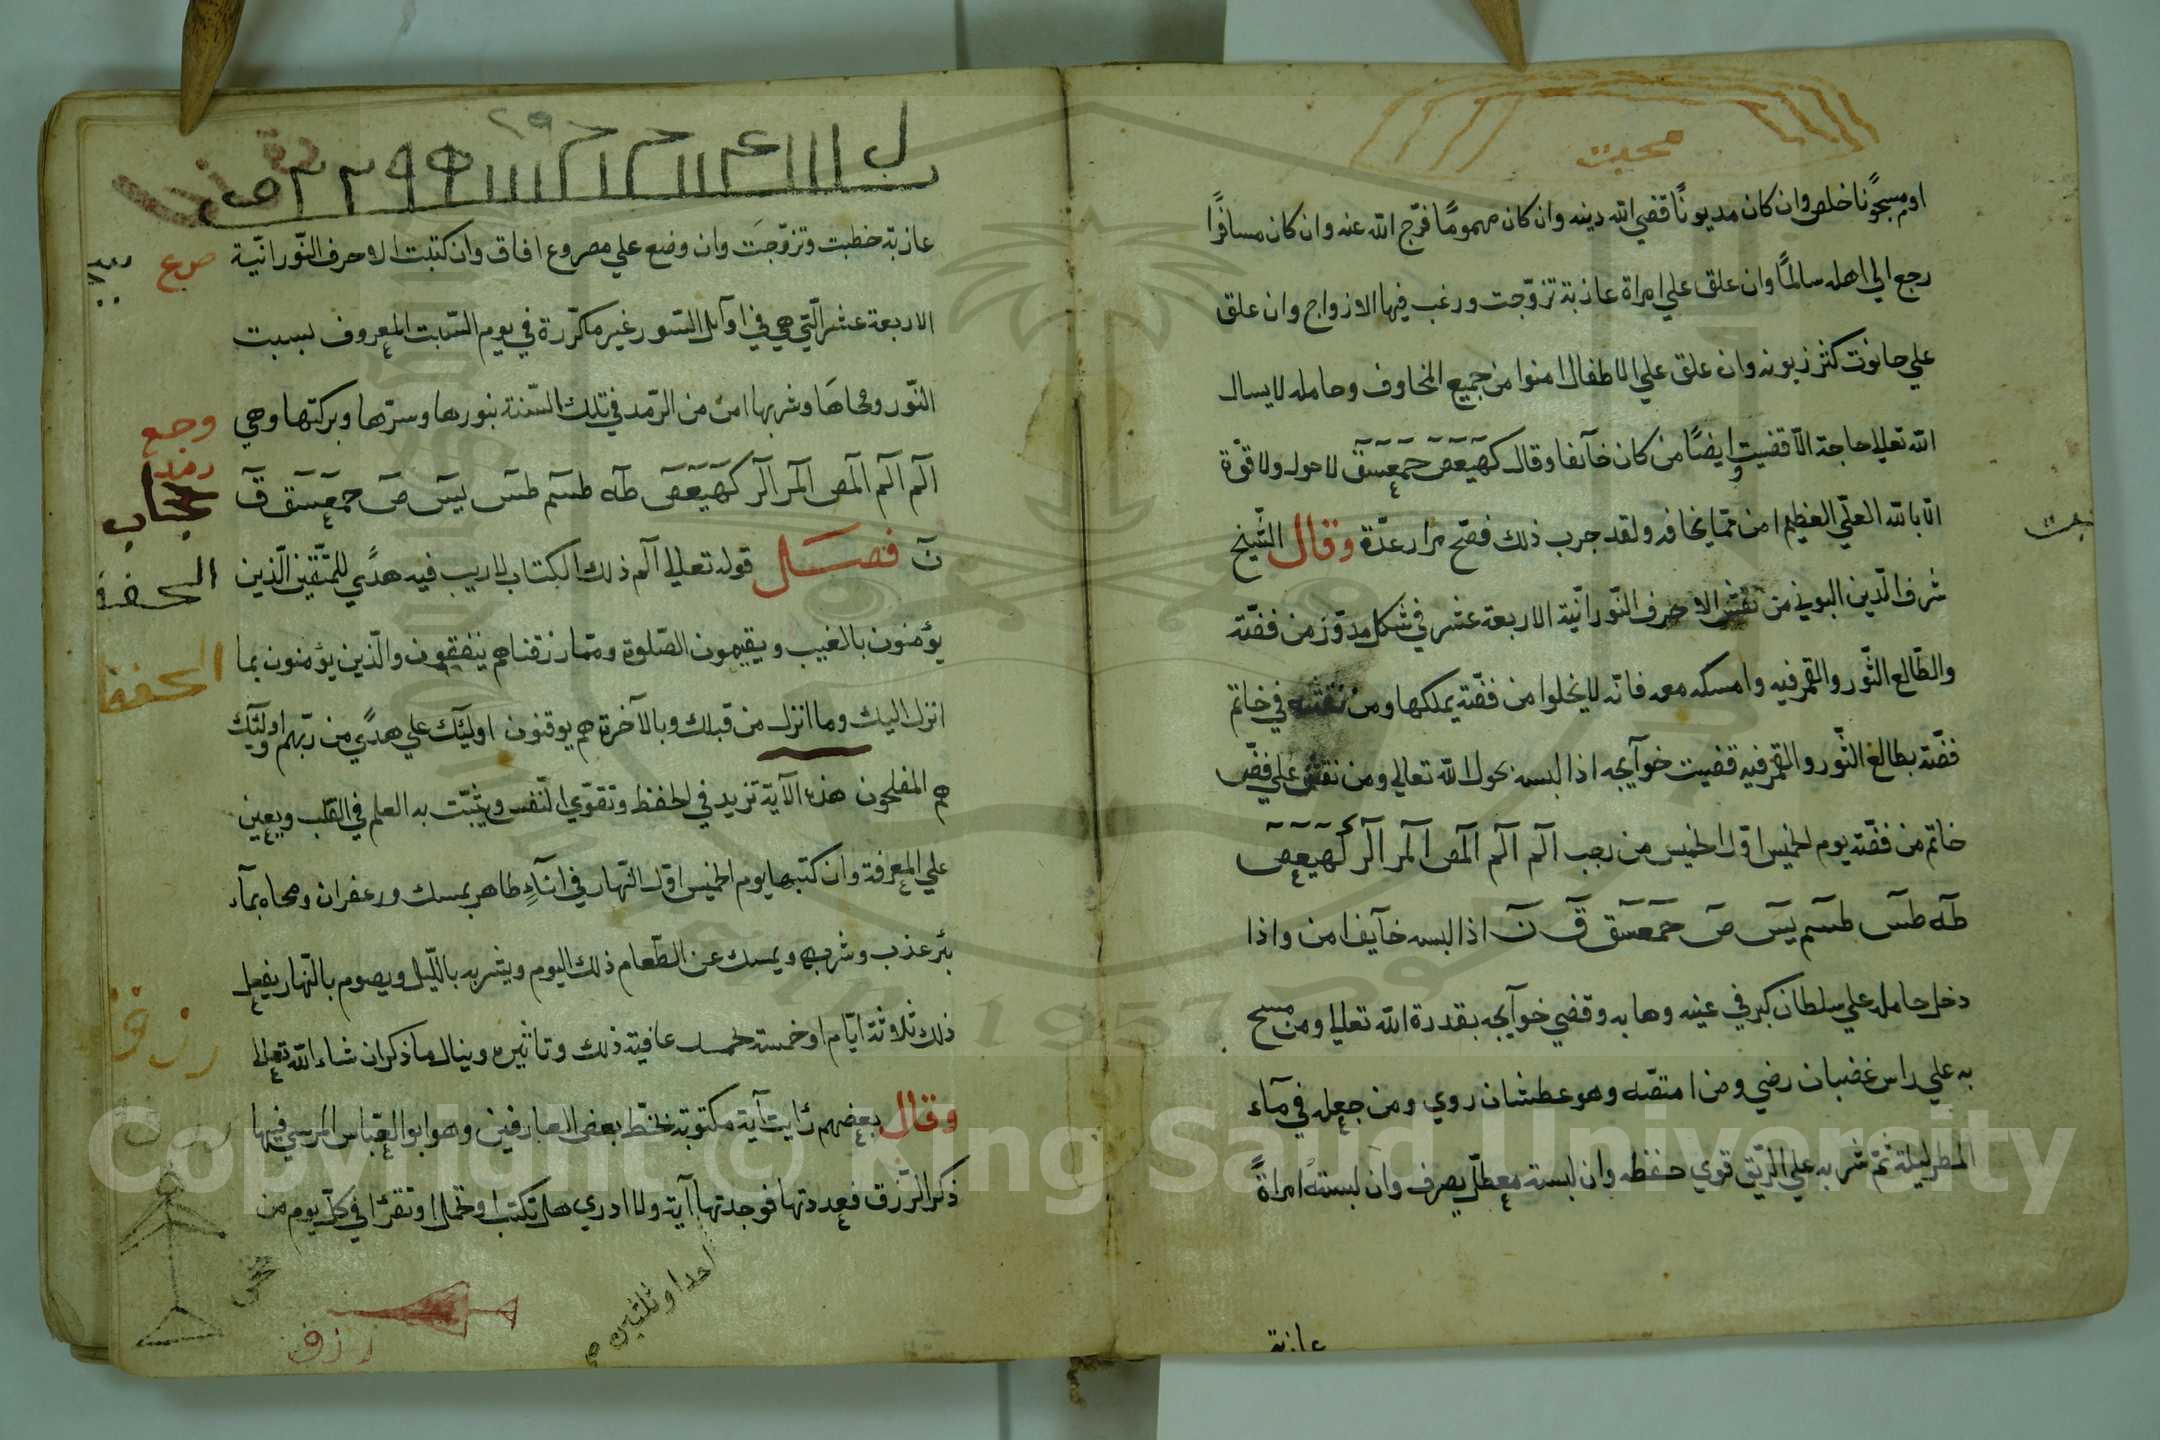 محبت
او مسجونًا خلص وان كان مديونًا قضي الله دينه وان كان مهمومًا فرّج الله عنه وان كان مسافرًا
رجع الي اهله سالمًا وان علق علي امراة عازبة تزوّجت ورغب فيها الازواج وان علق
علي حانوت كثر زبونه وان علق علي الاطفال امنوا من جميع المخاوف وحامله لا يسال
الله تعالي حاجة الّا قضيت وايضًا من كان خآئفا وقال كهيعص حمعسق لا حول ولا قوّة
الّا بالله العليّ العظيم امن ممّا يخافه ولقد جرب ذلك فصّح مرار عدّة وقال الشّيخ
شرف الدّين البوني من نقش الاحرف النّورانيّة الاربعة عشر في شكل مدوّر من فضّة
والطّالع الثّور والقمر فيه وامسكه معه فانّه لا يخلوا من فضّة يملكها ومن نقشه في خاتم
فضّة بطالع الثّور والقمر فيه قضيت حوآيجه اذا لبسه بحول الله تعالي ومن نقش علي فصّ
خاتم من فضّة يوم الخميس اوّل الخميس من رجب الٓم الٓم الٓمص الٓمر الٓر كهيعص
طٓه طسٓ طسٓم يسٓ صٓ حمعسق قٓ نٓ اذا لبسه خآيفا امن واذا
دخل حامله علي سلطان كبر في عينه وهابه وقضي حوآيجه بقدرة الله تعالي ومن مسح
به علي راس غضبان رضي ومن امتصّه وهو عطشان روي ومن جعله في مآء
المطر ليلة ثمّ شربه علي الرّيق قوي حفظه وان لبسته معطلّ يصرف وان لبسته امراةً
عازبة
عازبة خطبت وتزوّجت وان وضع علي مصروع افاق وان كتبت الاحرف النّورانيّة
صرع
الاربعة عشر الّتي هي في اوآيل السّور غير مكرّرة في يوم السّبت المعروف بسبت
النّور ومحاهَا وشربها امن من الرّمد في تلك السّنة بنورها وسرّها وبركتها وهي
وجع
رمد
الٓم الٓم الٓمص الٓمر الٓر كهيعص طٓه طسٓم طسٓ يسٓ صٓ حمعسق قٓ
نٓ فصل قوله تعالي الٓم ذلك الكتاب لا ريب فيه هدًي للمتّقين الّذين
يؤمنون بالغيب ويقيمون الصّلوة وممّا رزقناهم ينفقون والّذين يؤمنون بما
انزل اليك وما انزل من قبلك وبالآخرة هم يوقنون اوليٓك علي هدًي من ربّهم واوليٓك
هم المفلحون هذه الآية تزيد في الحفظ وتقوّي النّفس ويثبّت به العلم في القلب ويعين
علي المعرفة وان كتبها يوم الخميس اوّل النّهار في انآءٍ طاهر بمسك وزعفران ومحاه بمآء
بئر عذب وشربه ويمسك عن الطّعام ذلك اليوم ويشربه باللّيل ويصوم بالنّهار يفعل
ذلك ثلاثة ايّام او خمسة عافية ذلك وتاثيره وينال ما ذكر ان شاء الله تعالي
رزق
وقال بعضهم رايت آية مكتوبة بخطّ بعض العارفين وهو ابو العبّاس المرسي فيها
ذكر الرّزق فعددتها فوجدتها آية ولا ادري هل تكتب او تحمل او تقرا في كلّ يوم من
احدا وثلثين
رزق